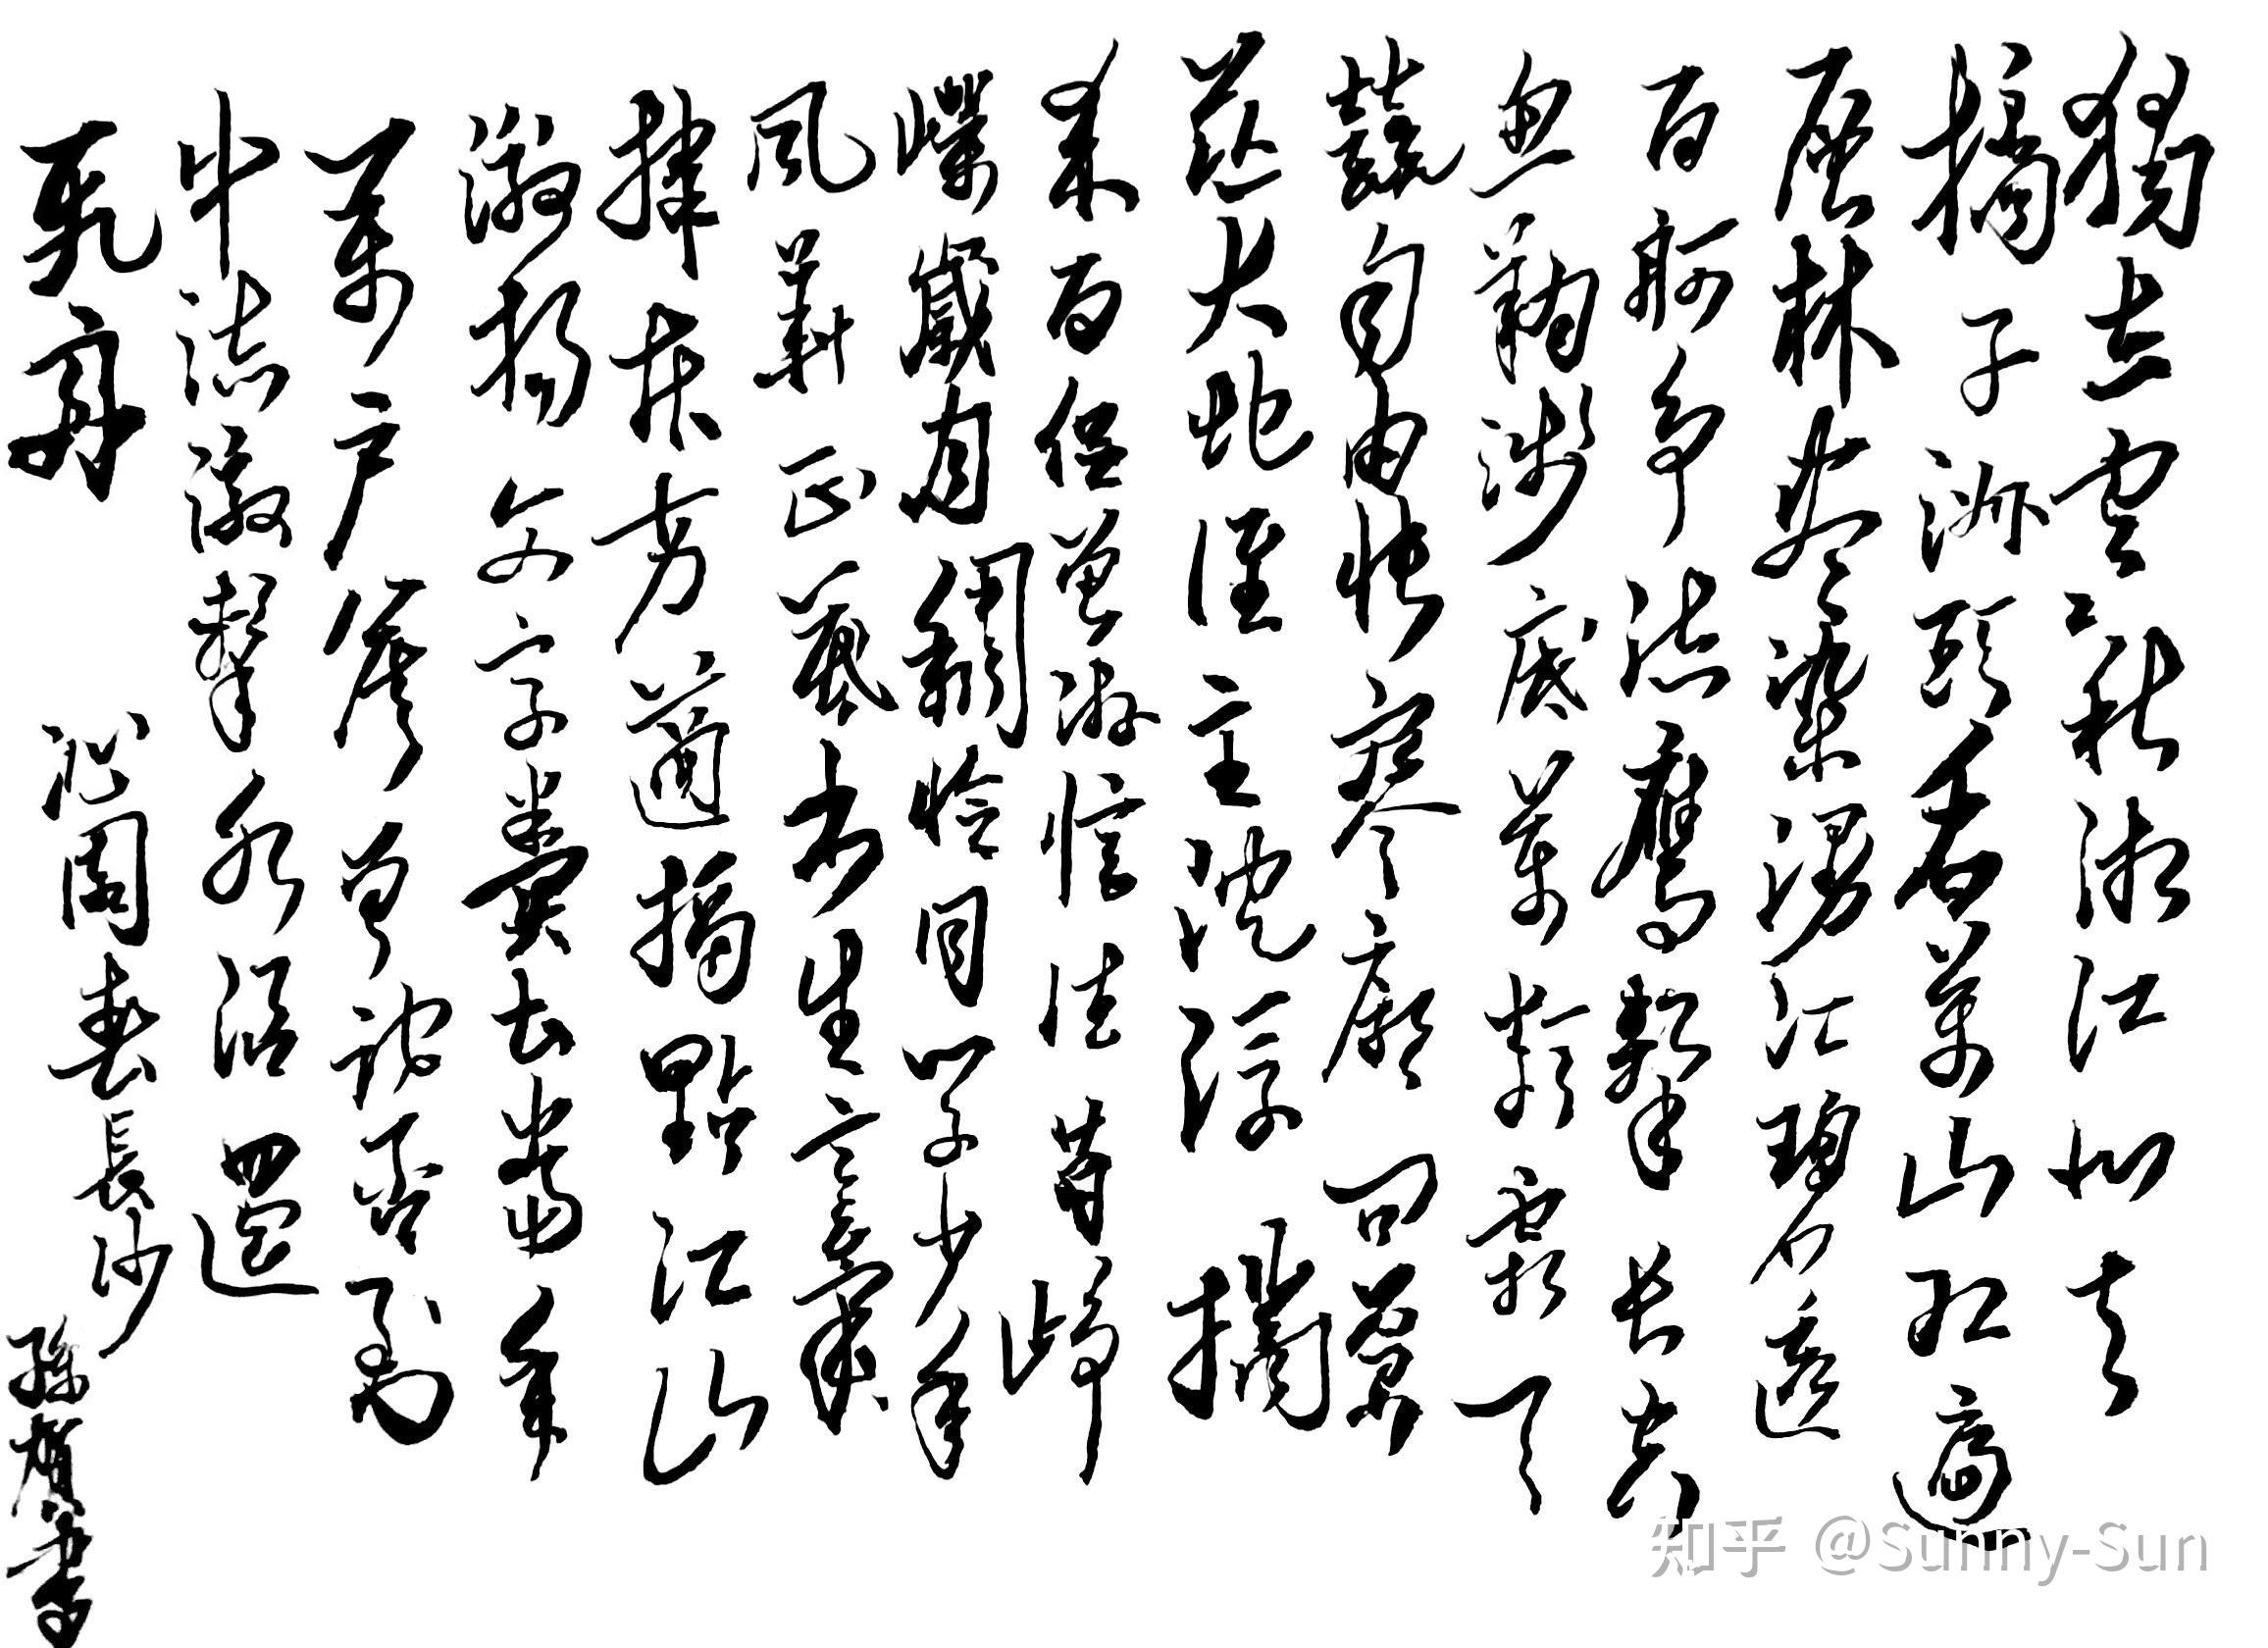 獨立寒秋湘江北去
橘子洲頭看萬山紅遍
層林盡染漫江碧透
百舸爭流鷹擊長空
魚翔淺底萬類霜天
競自由悵寥廓問蒼
茫大地誰主沉浮攜
來百侶曾遊憶往昔崢
嶸歲月稠恰同學少年
風華正茂書生意氣
揮斥方遒指點江山
激揚文字糞土當年
萬戶侯曾記否到
中流激擊水浪遏
飛舟 沁園春長沙
孫書
知乎 @Sunny-Sun